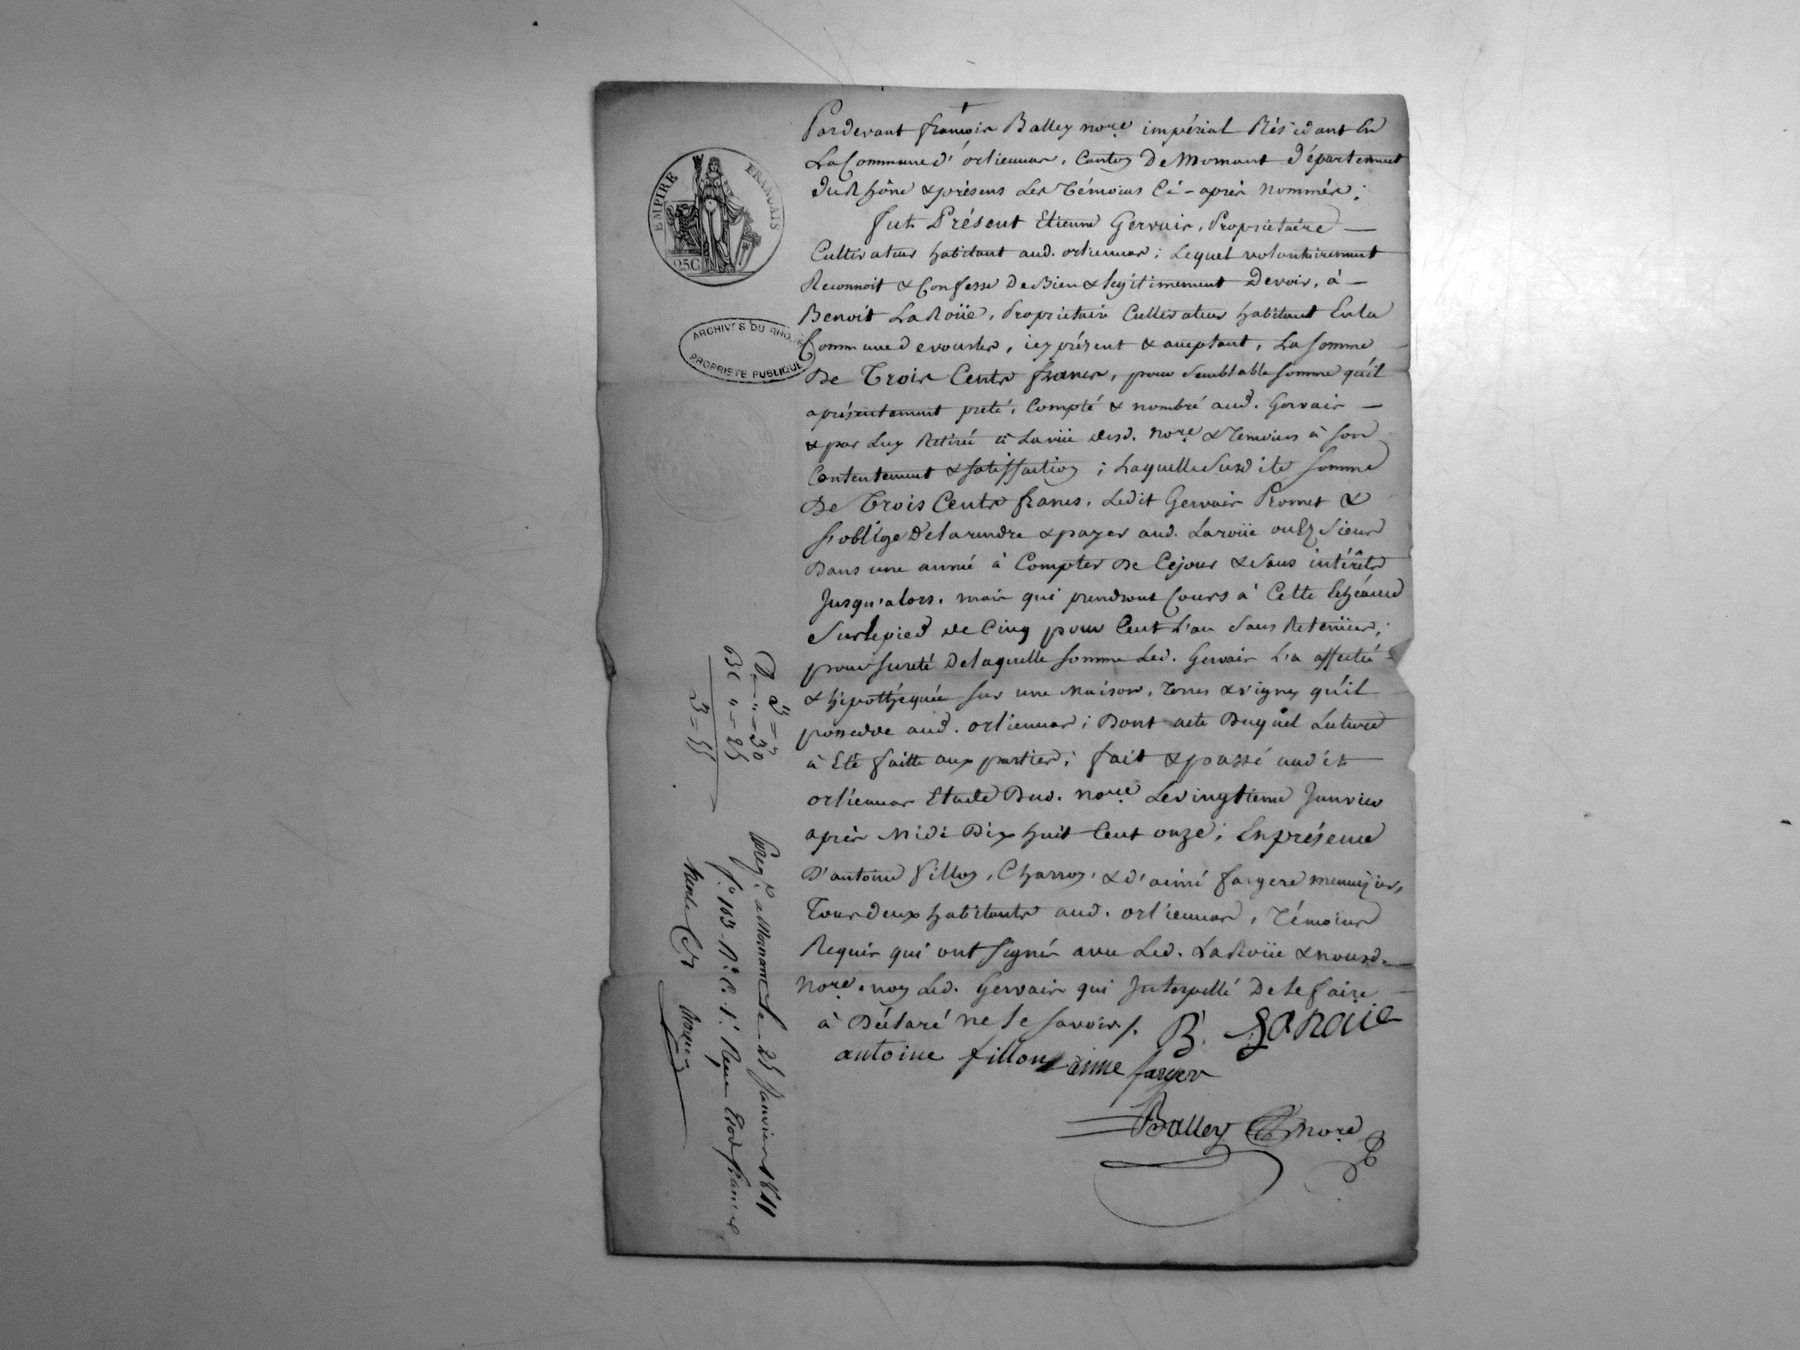 Pardevant françois Balley nore impérial Résidant En
La Commune d'orliennas, Canton De Mornant Département
du Rhône & présens Les Témoins Ci-après nommés;
fut Présent Etienne Gervais, Proprietaire
Cultivateur habitant aud. orliennas; Lequel volontairement
Reconnoit & Confesse De Bien & legitimement Devoir, à
Benoit LaRoüe, Proprietaire Cultivateur habitant En la
Commune de vourles, icy présent & acceptant, La somme
De Trois Cents francs, pour Semblable somme qu'il
a présentement preté, Compté & nombré aud. Gervais
& par Luy Retiré à La vüe desd. nore & Temoins à son
Contentement & satisffaction; Laquelle Susdite somme
De Trois Cents francs, Ledit Gervais Promet &
s'oblige De la rendre & payer aud. Laroüe ou Ez Siens
Dans une année à Compter De Cejour & Sans intérêts
Jusqu'alors, mais qui prendront Cours à Cette Echéance
Sur le pied de Cinq pour Cent L'an Sans Retenüe;
pour sureté De laquelle somme Led. Gervais L'a affecté
& hipothéquée sur une Maison, Terres & vignes qu'il
possedde aud. orliennas; Dont acte Duquel Lecture
à Eté faitte aux parties; fait & passé audit
orliennas Etude Dud. nore Le vingtieme Janvier
après Midi Dix huit Cent onze; En présence
D'antoine fillon, Charron, & d'aimé fargere menuizier,
Tous deux habitants aud. orliennas, Témoins
Requis qui ont signés avec Led. LaRoüe & nousd.
nore, non Led. Gervais qui Interpellé De le faire
à Déclaré ne le savoir/.
B. LaRoüe
antoine fillon
aime farger
Balley nore
EMPIRE FRANÇAIS
25C
ARCHIVES DU RHÔNE
PROPRIÉTÉ PUBLIQUE
3 =
D " = 30
BC " = 25
3 = 55
à Mornant le 25 Janvier 1811
fo 103 Ro C. 1. Reçu trois francs